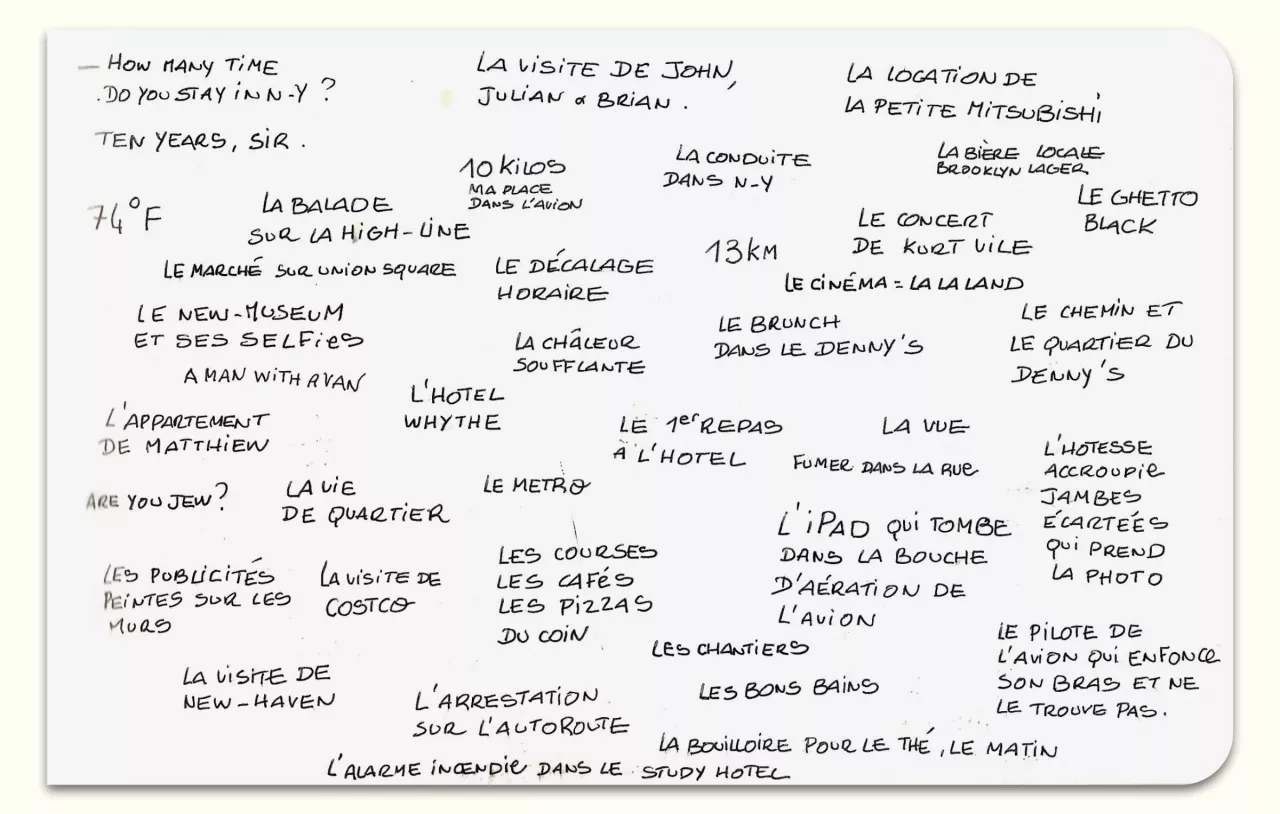 — HOW MANY TIME
. DO YOU STAY IN N-Y ?
TEN YEARS, SIR .
LA VISITE DE JOHN,
JULIAN & BRIAN .
LA LOCATION DE
LA PETITE MITSUBISHI
10 KILOS
MA PLACE
DANS L'AVION
LA CONDUITE
DANS N-Y
LA BIÈRE LOCALE
BROOKLYN LAGER
LE GHETTO
BLACK
74°F
LA BALADE
SUR LA HIGH-LINE
13 KM
LE CONCERT
DE KURT VILE
LE MARCHÉ SUR UNION SQUARE
LE DÉCALAGE
HORAIRE
LE CINÉMA = LA LA LAND
LE NEW-MUSEUM
ET SES SELFIES
LA CHÂLEUR
SOUFFLANTE
LE BRUNCH
DANS LE DENNY'S
LE CHEMIN ET
LE QUARTIER DU
DENNY'S
A MAN WITH RYAN
L'HOTEL
WHYTHE
L'APPARTEMENT
DE MATTHIEW
LE 1er REPAS
À L'HOTEL
LA VUE
FUMER DANS LA RUE
L'HOTESSE
ACCROUPIE
JAMBES
ÉCARTEÉS
QUI PREND
LA PHOTO
ARE YOU JEW ?
LA VIE
DE QUARTIER
LE METRO
L'iPAD QUI TOMBE
DANS LA BOUCHE
D'AÉRATION DE
L'AVION
LES PUBLICITÉS
PEINTES SUR LES
MURS
LA VISITE DE
COSTCO
LES COURSES
LES CAFÉS
LES PIZZAS
DU COIN
LES CHANTIERS
LE PILOTE DE
L'AVION QUI ENFONCE
SON BRAS ET NE
LE TROUVE PAS.
LA VISITE DE
NEW-HAVEN
L'ARRESTATION
SUR L'AUTOROUTE
LES BONS BAINS
LA BOUILLOIRE POUR LE THÉ, LE MATIN
L'ALARME INCENDIE DANS LE STUDY HOTEL